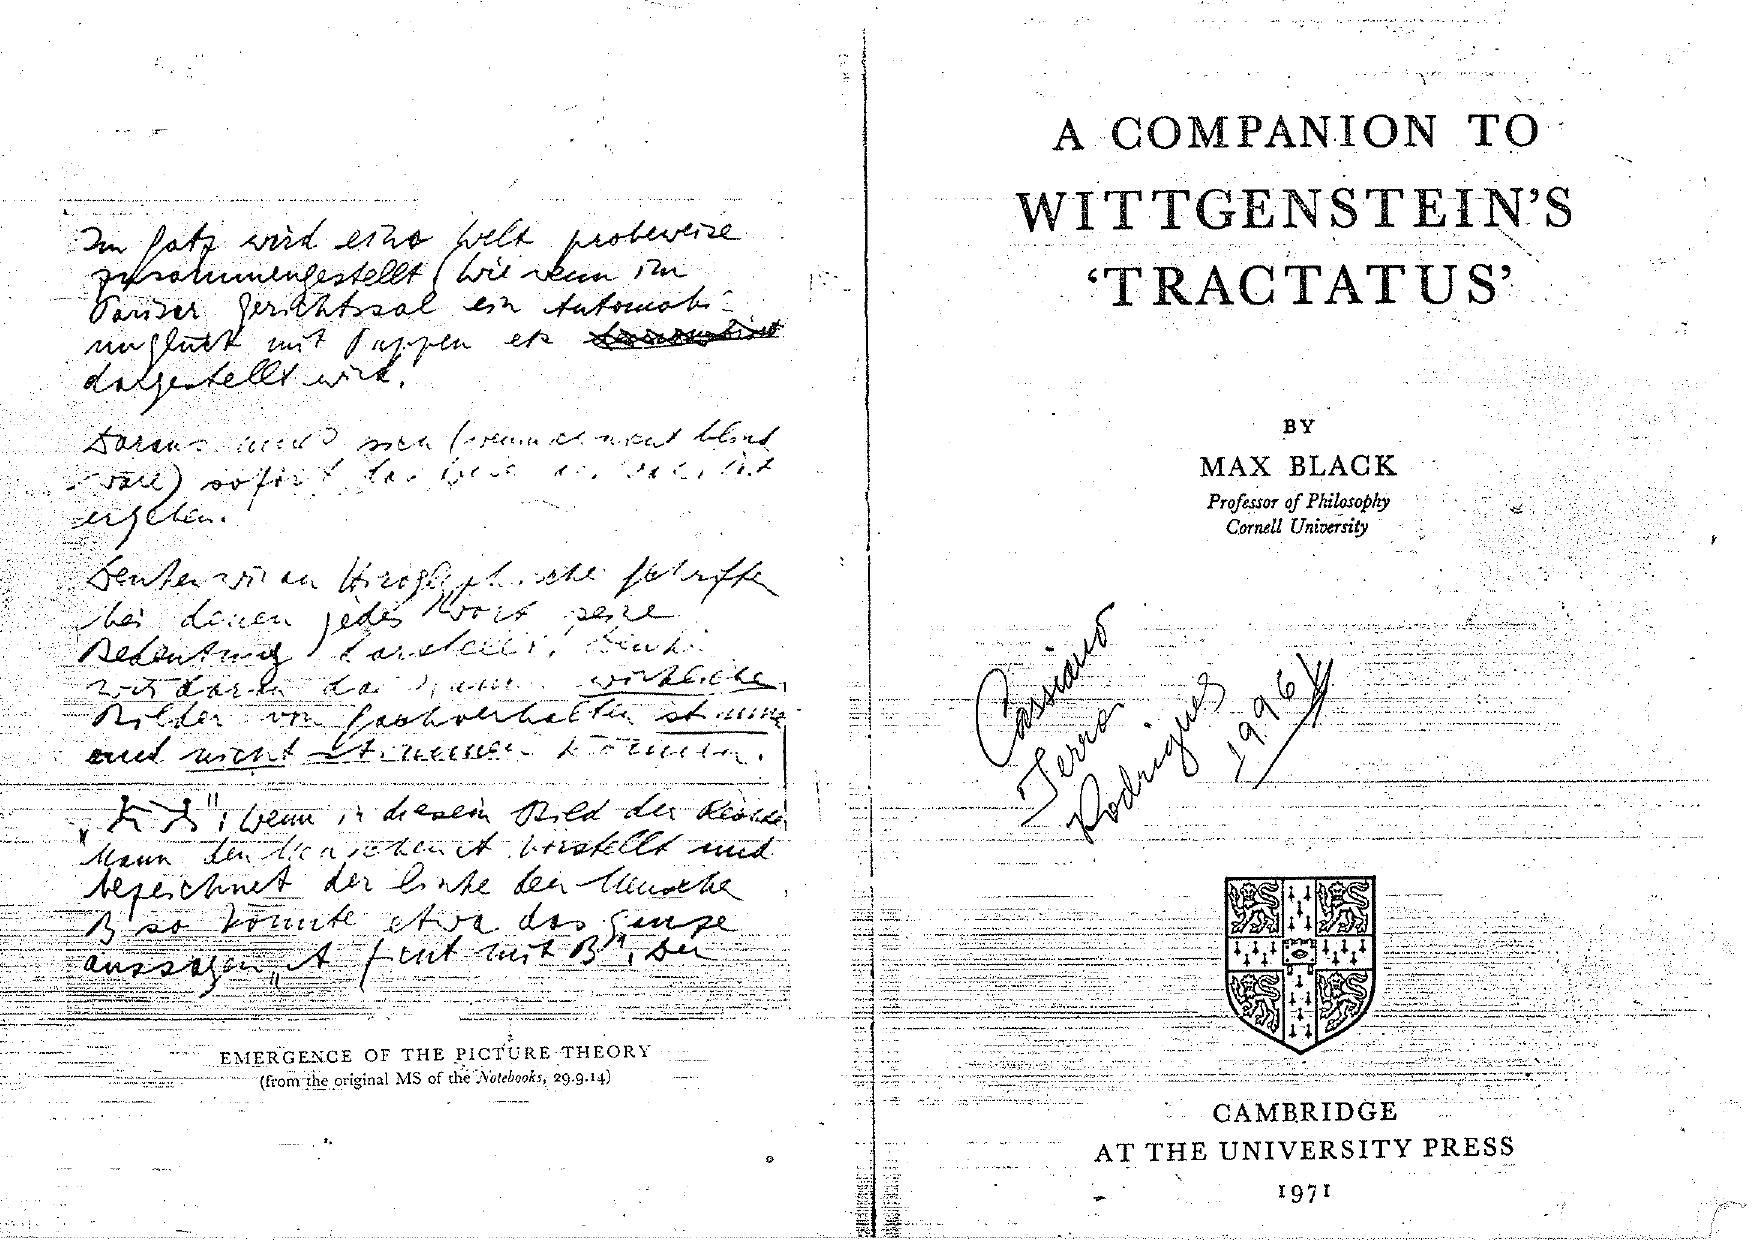 Im Satz wird eine Welt probeweise
zusammengestellt (Wie wenn im
Pariser Gerichtssal ein Automobil-
unglück mit Puppen etc
dargestellt wird.
Daraus muß sich (wenn ich nicht blind
wäre) sofort das Wesen der Wahrheit
ergeben.
Denken wir an Hiroglyphische Schriften
bei denen jedes Wort seine
Bedeutung darstellt! Denken
wir daran daß auch wirkliche
Bilder von Sachverhalten stimmen
und nicht stimmen können.
": Wenn in diesem Bild der Rechte
Mann den Menschen A vorstellt und
bezeichnet der linke den Menschen
B so könnte etwa das ganze
aussagen „A ficht mit B". Der
EMERGENCE OF THE PICTURE THEORY
(from the original MS of the Notebooks, 29.9.14)
A COMPANION TO
WITTGENSTEIN'S
'TRACTATUS'
BY
MAX BLACK
Professor of Philosophy
Cornell University
Cassiano
Terra
Rodrigues
1996
CAMBRIDGE
AT THE UNIVERSITY PRESS
1971